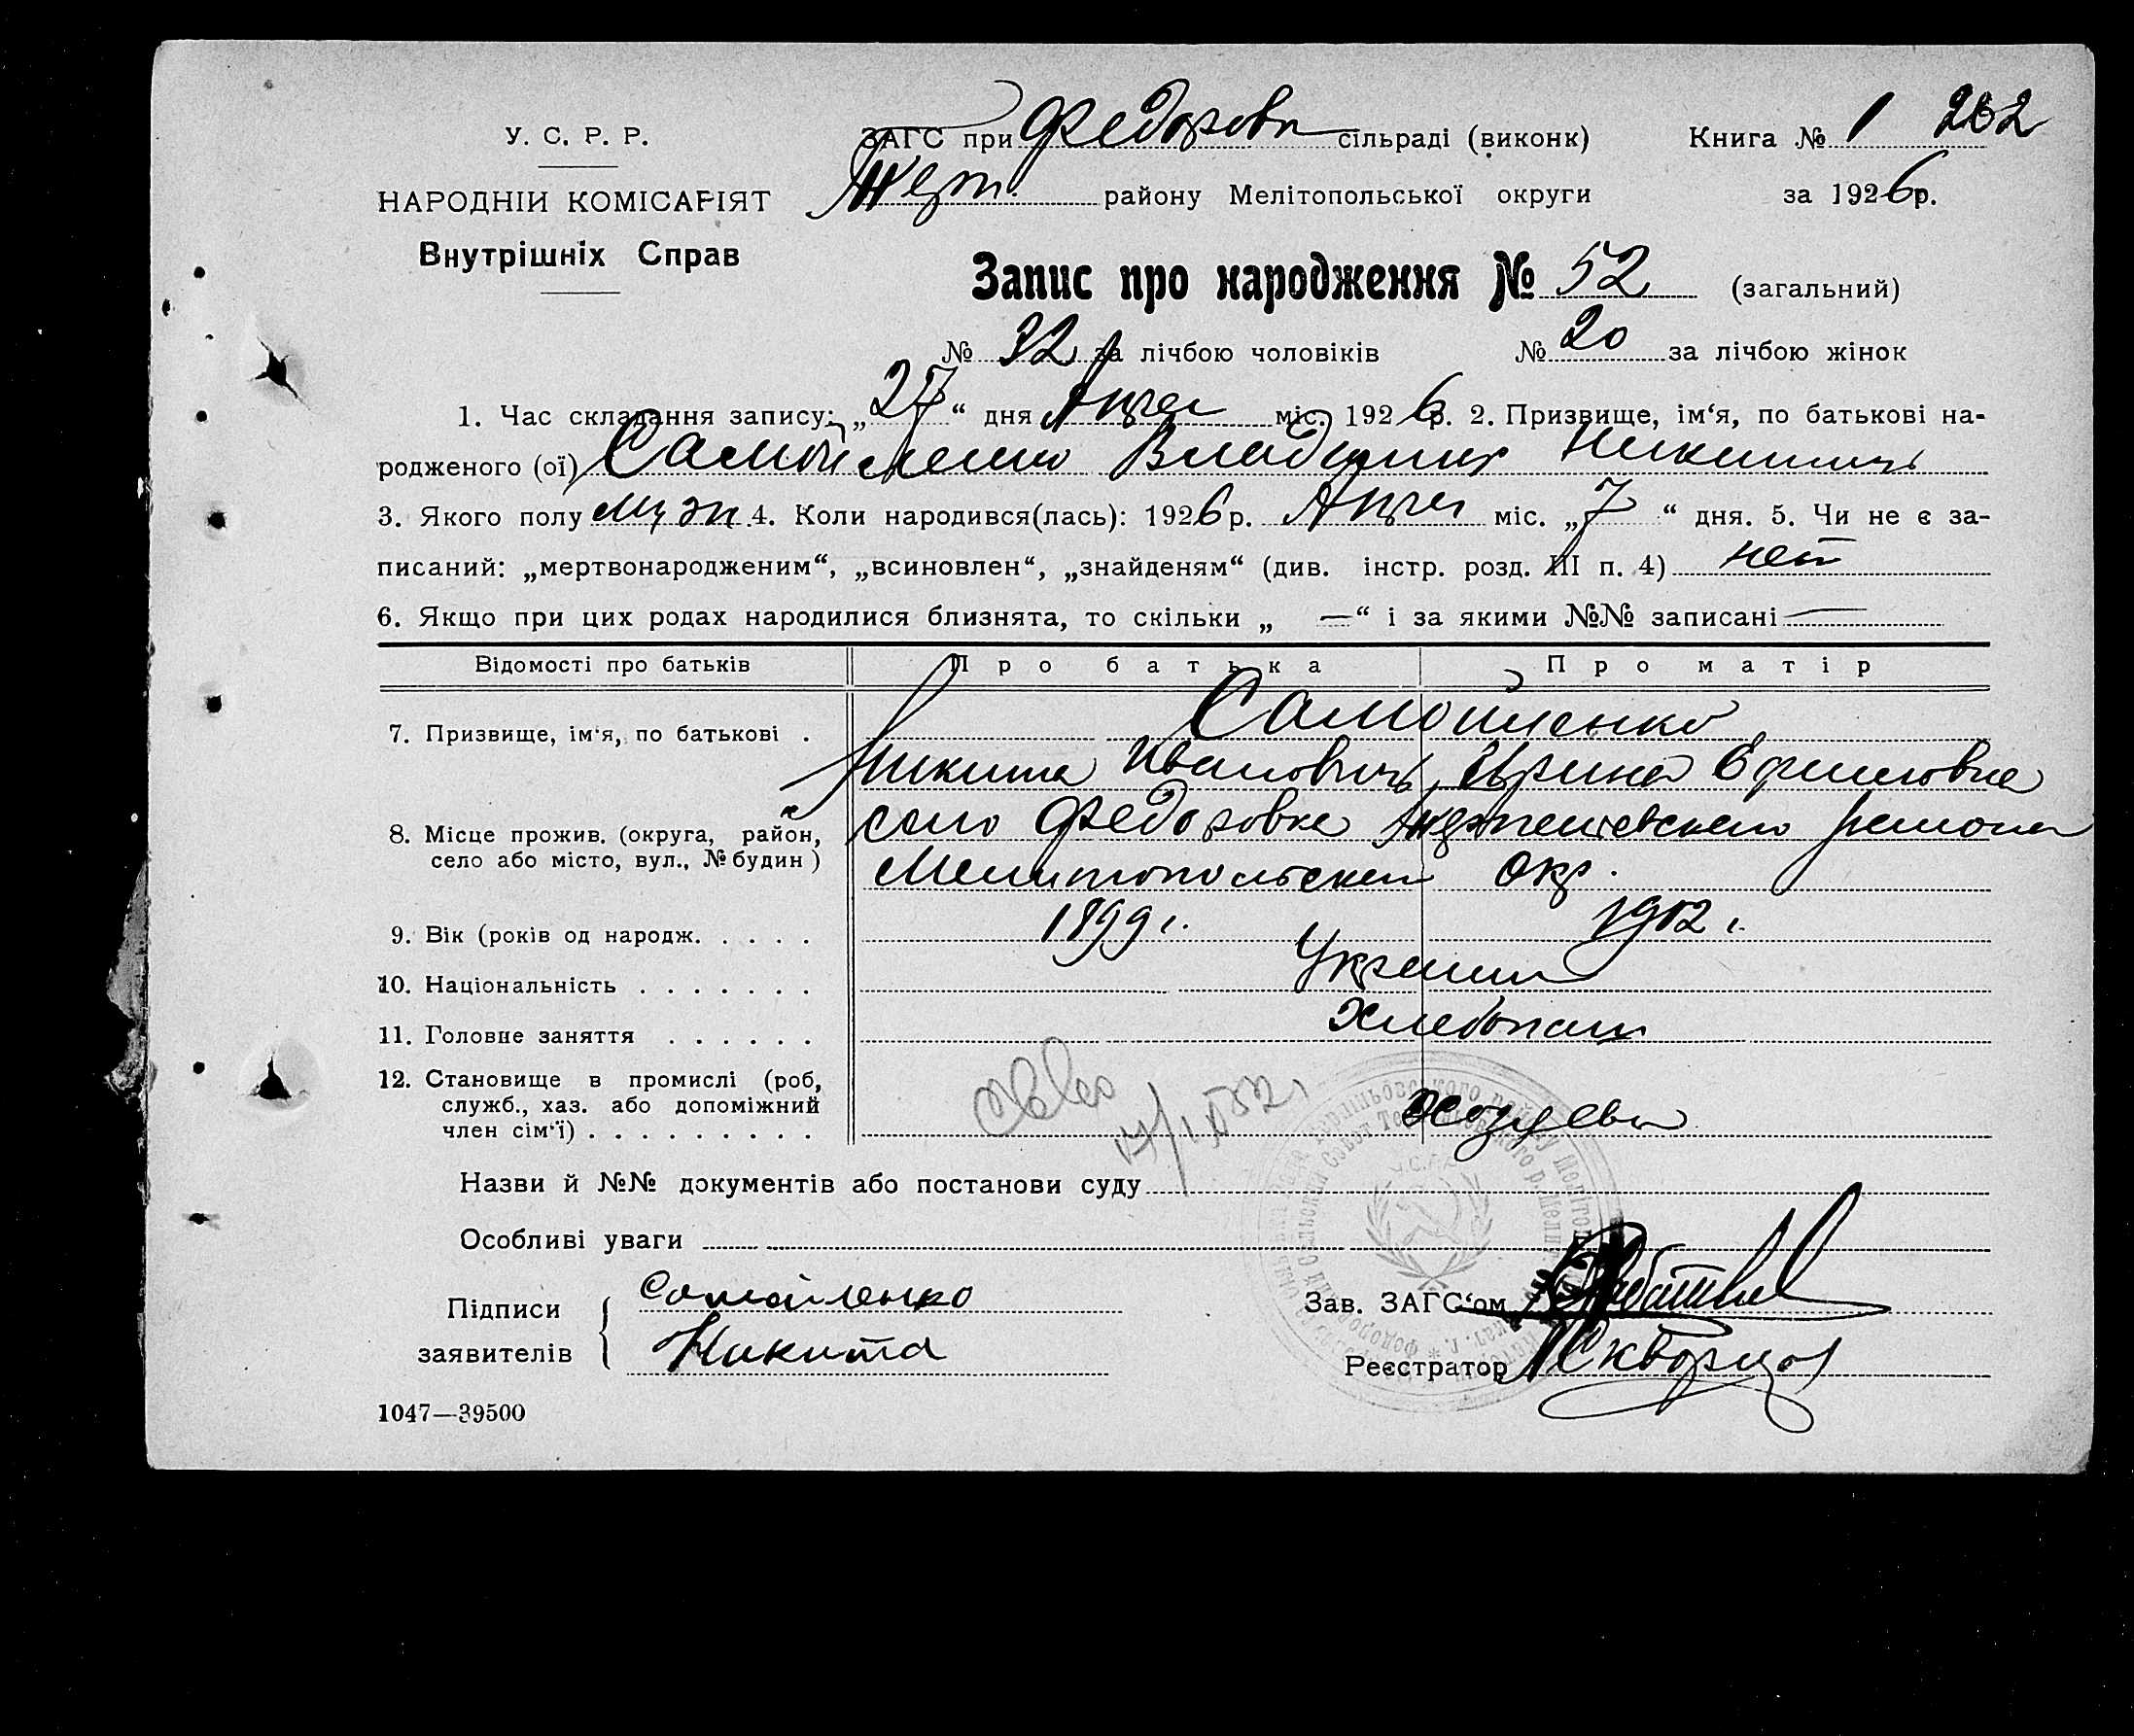 У. С. Р. Р.
НАРОДНІЙ КОМІСАРІЯТ
Внутрішніх Справ
ЗАГС при Федоровк сільраді (виконк) Книга № 1 262
району Мелітопольської округи за 1926р.
Запис про народження № 52 (загальний)
№ 32 за лічбою чоловіків № 20 за лічбою жінок
1. Час складання запису: „27“ дня Апрел міс. 1926р. 2. Призвище, ім‘я, по батькові на-
родженого (ої) Самойленко Владимир Никитич
3. Якого полу муж. 4. Коли народився(лась): 1926р. Апрел міс. „7“ дня. 5. Чи не є за-
писаний: „мертвонародженим“, „всиновлен“, „знайденям“ (див. інстр. розд. III п. 4) нет
6. Якщо при цих родах народилися близнята, то скільки „ —“ і за якими №№ записані —
Відомості про батьків Про батька Про матір
7. Призвище, ім‘я, по батькові . Самойленко
Никита Иванович Ирина Ефимовна
8. Місце прожив. (округа, район, село або місто, вул., № будин) село Федоровка района
Мелитопольской окр.
9. Вік (років од народж. . . . . 1899 г. 1902 г.
10. Національність . . . . . . . Украин
11. Головне заняття . . . . . . Хлебопаш
12. Становище в промислі (роб,
служб., хаз. або допоміжний
член сім‘ї) . . . . . . . . . хозяева
Назви й №№ документів або постанови суду
Особливі уваги
Підписи Самойленко Зав. ЗАГС‘ом
заявителів Никита Реєстратор Скворцов
1047—39500